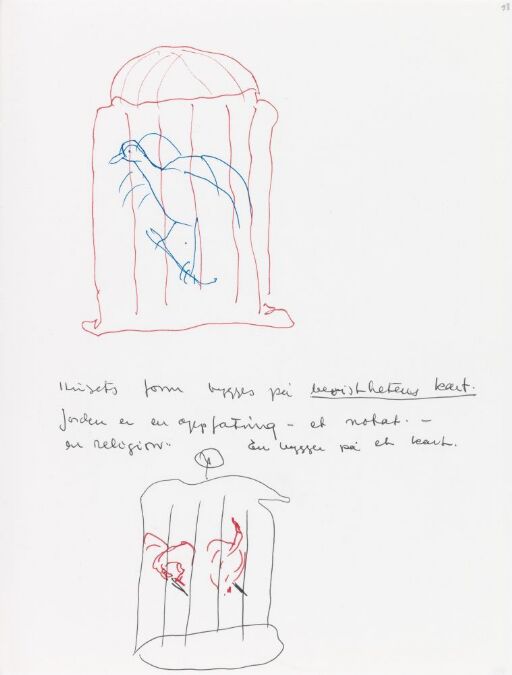 Husets form bygges på bevissthetens kart.
Jorden er en oppfatning – et notat. –
en religion. En bygger på et kart.